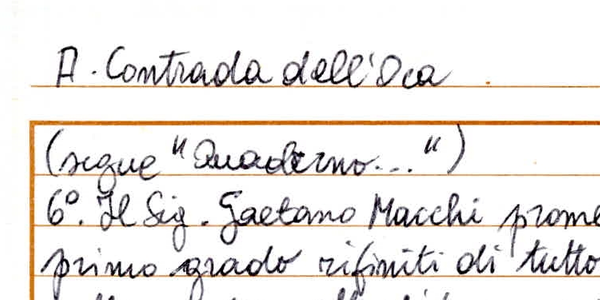 A. Contrada dell'Oca
(segue "Quaderno..." )
6°. Il Sig. Gaetano Macchi prome
primo grado rifiniti di tutto